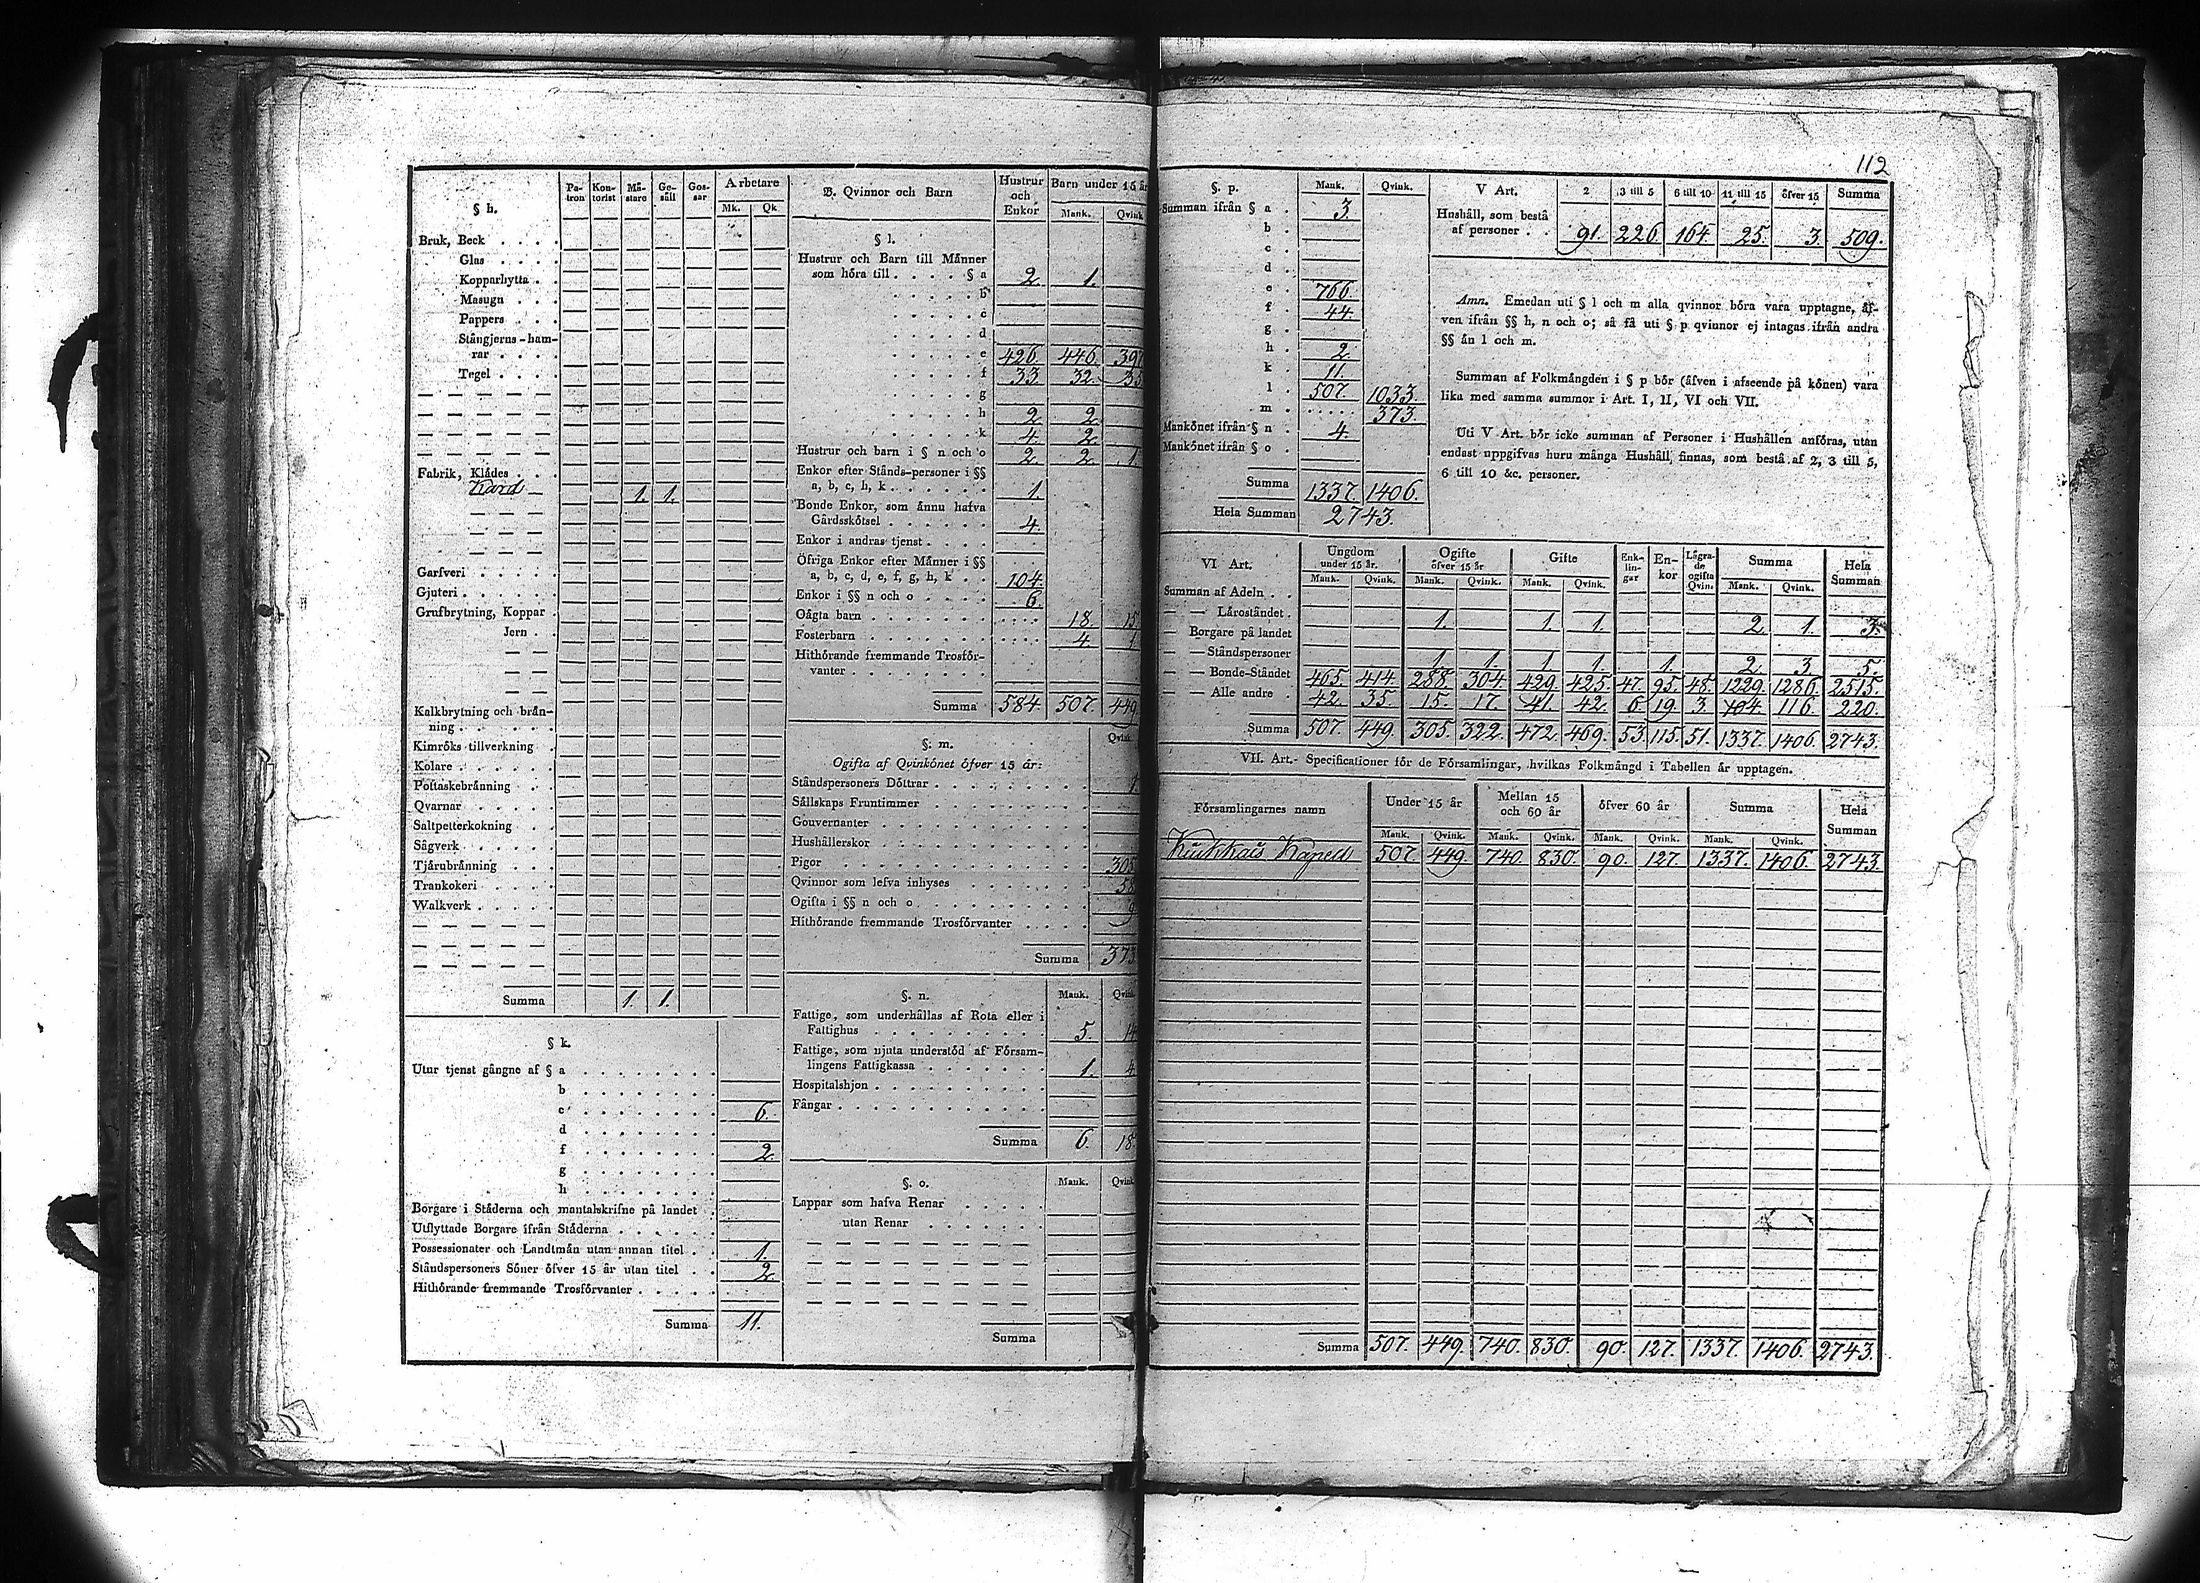 112
§ h. Pa-tron Kon-torist Må-stare Ge-säll Gos-sar Arbetare Mk. Qk.
Bruk, Beck
Glas
Kopparhytta
Masugn
Pappers
Stångjerns-ham-
rar
Tegel
Fabrik, Klådes
Kard 1. 1.
Garfveri
Gjuteri
Grufbrytning, Koppar
Jern
Kalkbrytning och brån-
ning
Kimröks tillverkning
Kolare
Pottaskebrånning
Qvarnar
Saltpetterkokning
Sågverk
Tjårubrånning
Trankokeri
Walkverk
Summa 1. 1.
§ k.
Utur tjenst gångne af § a
b
c 6.
d
f 2.
g
h
Borgare i Ståderna och mantalskrifne på landet
Utflyttade Borgare ifrån Ståderna
Possessionater och Landtmån utan annan titel 1.
Ståndspersoners Söner öfver 15 år utan titel 2.
Hithörande fremmande Trosförvanter
Summa 11.
B. Qvinnor och Barn Hustrur och Enkor Barn under 15 år Mank. Qvink.
§ l.
Hustrur och Barn till Männer
som höra till § a 2. 1.
b
c
d
e 426. 446. 397
f 33. 32. 35
g
h 2. 2.
k 4. 2.
Hustrur och barn i § n och o 2. 2. 1.
Enkor efter Stånds-personer i §§
a, b, c, h, k 1.
Bonde Enkor, som ånnu hafva
Gårdsskötsel 4.
Enkor i andras tjenst
Öfriga Enkor efter Männer i §§
a, b, c, d, e, f, g, h, k 104.
Enkor i §§ n och o 6.
Oågta barn 18. 15.
Fosterbarn 4. 1
Hithörande fremmande Trosför-
vanter
Summa 584 507. 449.
§. m. Qvink.
Ogifta af Qvinkönet öfver 15 år:
Ståndspersoners Döttrar 1
Sållskaps Fruntimmer
Gouvernanter
Hushållerskor
Pigor 305
Qvinnor som lefva inhyses 58
Ogifta i §§ n och o 9.
Hithörande fremmande Trosförvanter
Summa 373
§. n. Mank. Qvink.
Fattige, som underhållas af Rota eller i
Fattighus 5. 14
Fattige, som njuta understöd af Församlingens Fattigkassa 1. 4
Hospitalshjon
Fångar
Summa 6. 18
§. o. Mank. Qvink.
Lappar som hafva Renar
utan Renar
Summa
§. p. Mank. Qvink.
Summan ifrån § a 3.
b
c
d
e 766.
f 44.
g
h 2.
k 11.
l 507. 1033.
m 373.
Mankönet ifrån § n 4.
Mankönet ifrån § o
Summa 1337. 1406.
Hela Summan 2743.
V Art. 2 3 till 5 6 till 10 11 till 15 öfver 15 Summa
Hushåll, som bestå
af personer 91. 226. 164. 25. 3. 509.
Anm. Emedan uti § l och m alla qvinnor böra vara upptagne, äf-
ven ifrån §§ h, n och o; så få uti § p qvinnor ej intagas ifrån andra
§§ än l och m.
Summan af Folkmängden i § p bör (äfven i afseende på könen) vara
lika med samma summor i Art. I, II, VI och VII.
Uti V Art. bör icke summan af Personer i Hushållen anföras, utan
endast uppgifvas huru många Hushåll finnas, som bestå af 2, 3 till 5,
6 till 10 &c. personer.
VI Art. Ungdom under 15 år. Ogifte öfver 15 år Gifte Enk-lin-gar En-kor Lägra-de ogifta Qvin. Summa Hela Summan
Mank. Qvink. Mank. Qvink. Mank. Qvink. Mank. Qvink.
Summan af Adeln
— — Läroståndet 1. 1. 1. 2. 1. 3.
— Borgare på landet
— — Ståndspersoner 1. 1. 1. 1. 1. 2. 3. 5.
— — Bonde-Ståndet 465. 414. 288. 304. 429. 425. 47. 95. 48. 1229. 1286. 2515.
— — Alle andre 42. 35. 15. 17. 41. 42. 6. 19. 3. 104. 116. 220.
Summa 507. 449. 305. 322. 472. 469. 53. 115. 51. 1337. 1406. 2743.
VII. Art. Specificationer för de Församlingar, hvilkas Folkmängd i Tabellen är upptagen.
Församlingarnes namn Under 15 år Mellan 15 och 60 år öfver 60 år Summa Hela Summan
Mank. Qvink. Mank. Qvink. Mank. Qvink. Mank. Qvink.
507. 449. 740. 830. 90. 127. 1337. 1406. 2743.
Summa 507. 449. 740. 830. 90. 127. 1337. 1406. 2743.